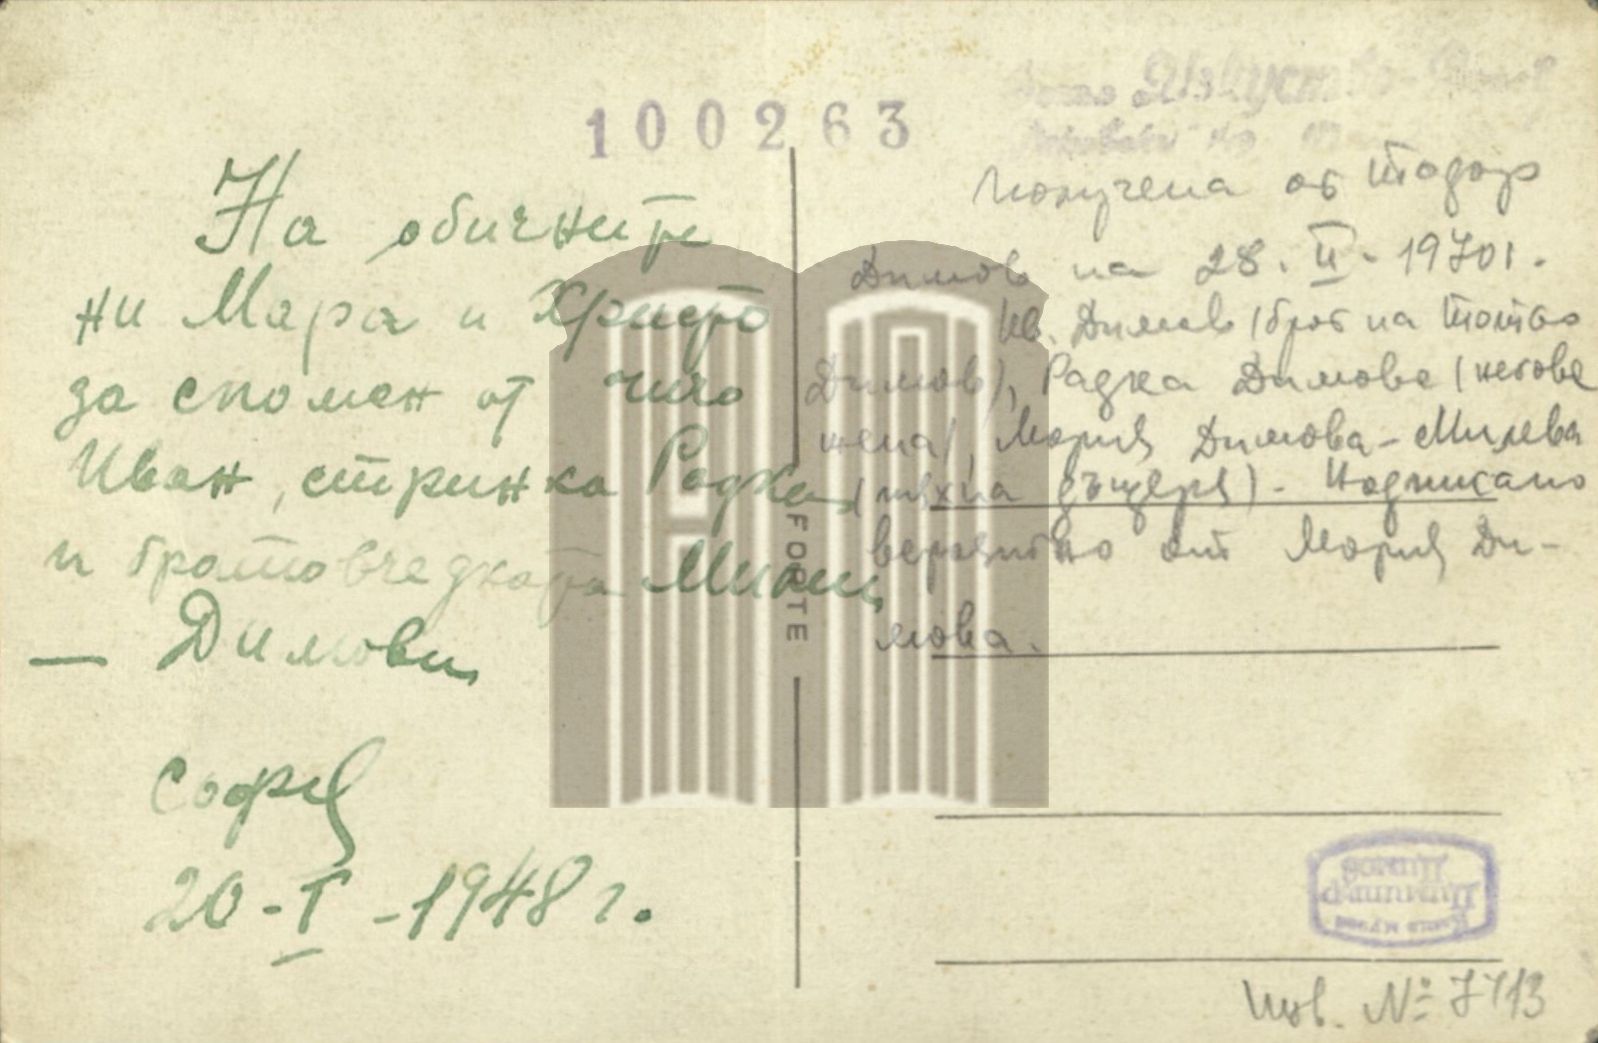 100263
На обичните
ни Мара и Христо
за спомен от чичо
Иван, стринка Радка
и братовчедката Мими
— Димови
София
20-I-1948 г.
Получена от Тодор
Димов на 28.II.1970г.
Ив. Димов (брат на Тотьо
Димов), Радка Димова (негова
жена), Мария Димова-Милева
(тяхна дъщеря). Надписано
вероятно от Мария Ди-
мова.
FORTE
Къща музей
Димитър
Димов
Инв. №